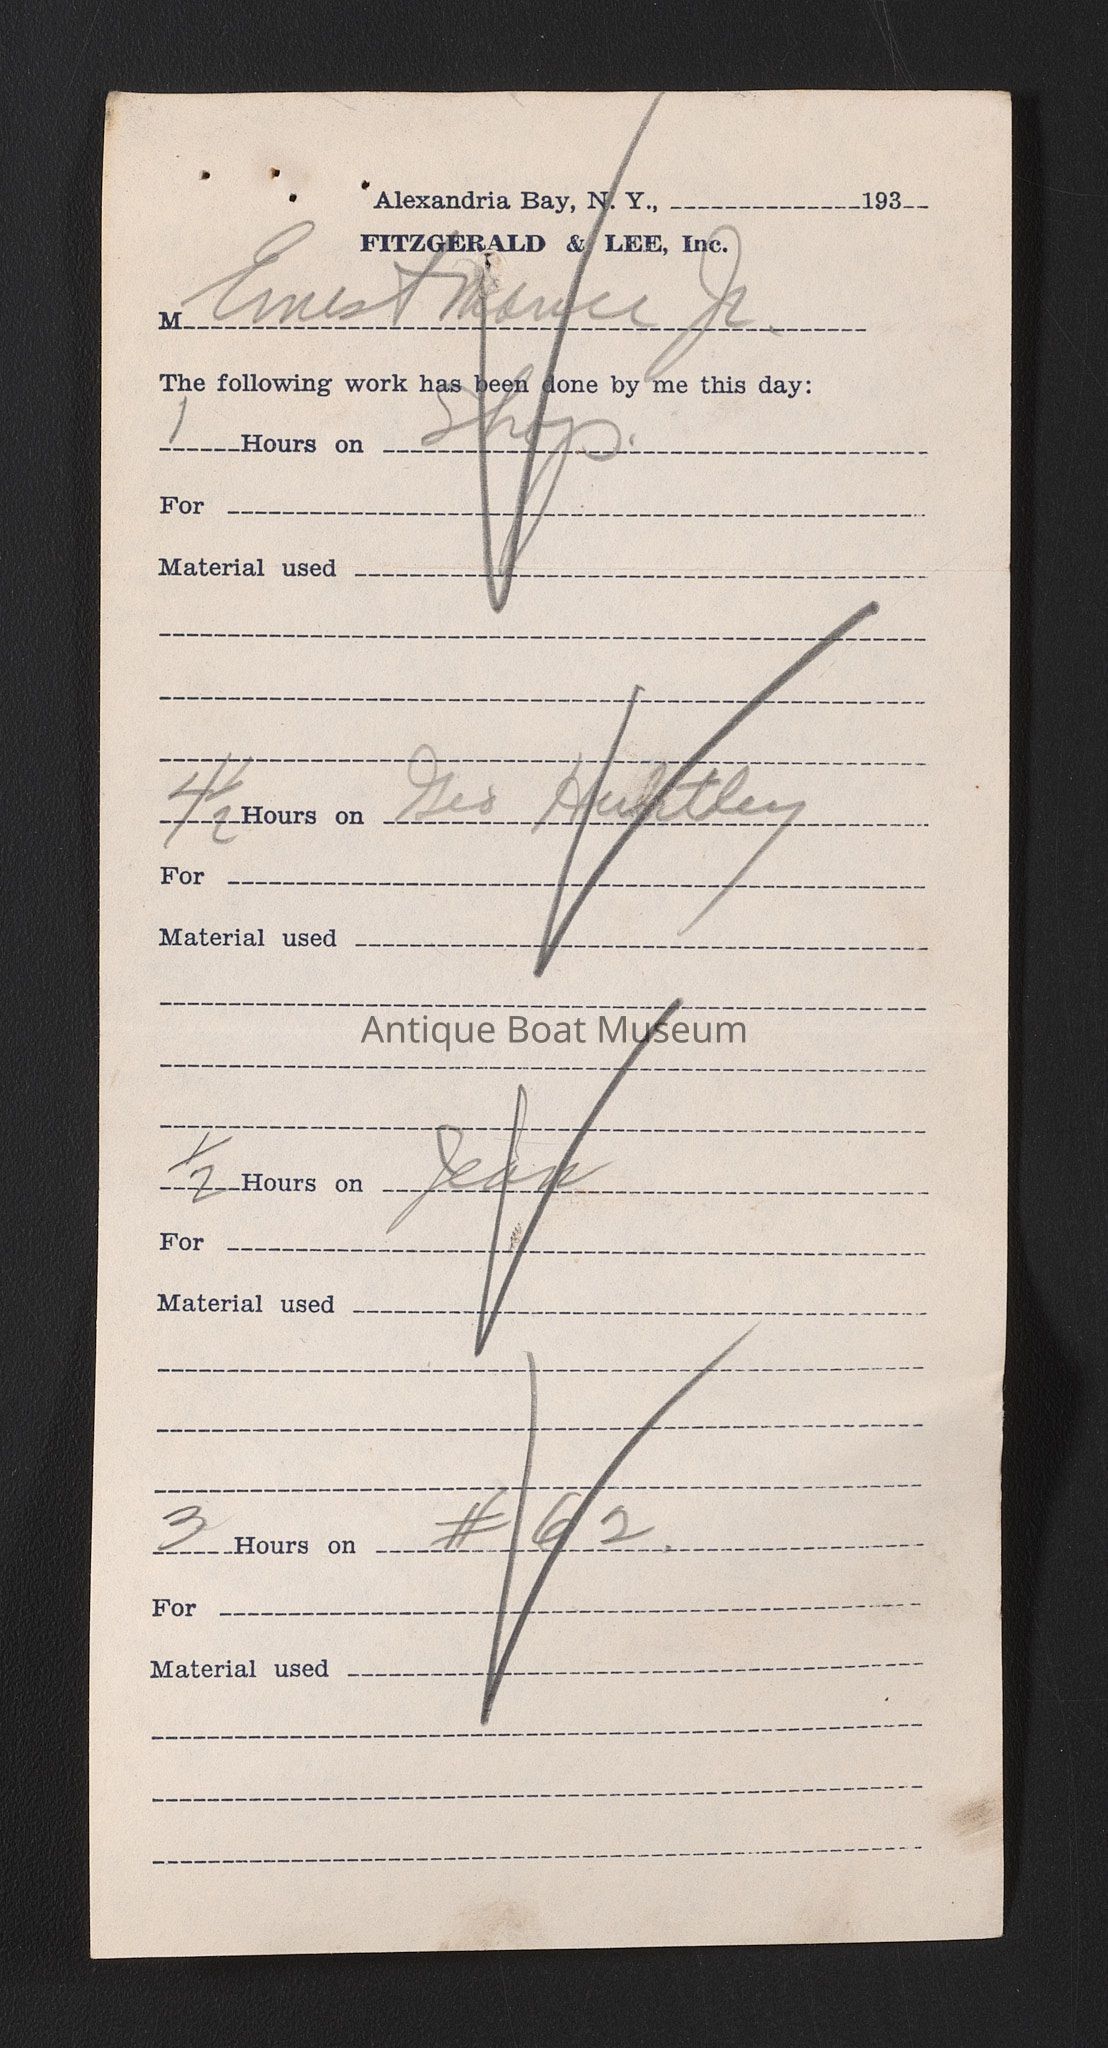 Alexandria Bay, N. Y., 193
FITZGERALD & LEE, Inc.
M Ernest Jr.
The following work has been done by me this day:
1 Hours on Shop.
For
Material used
4 1/2 Hours on Geo Huntley
For
Material used
Antique Boat Museum
1/2 Hours on Jean
For
Material used
3 Hours on # 62.
For
Material used